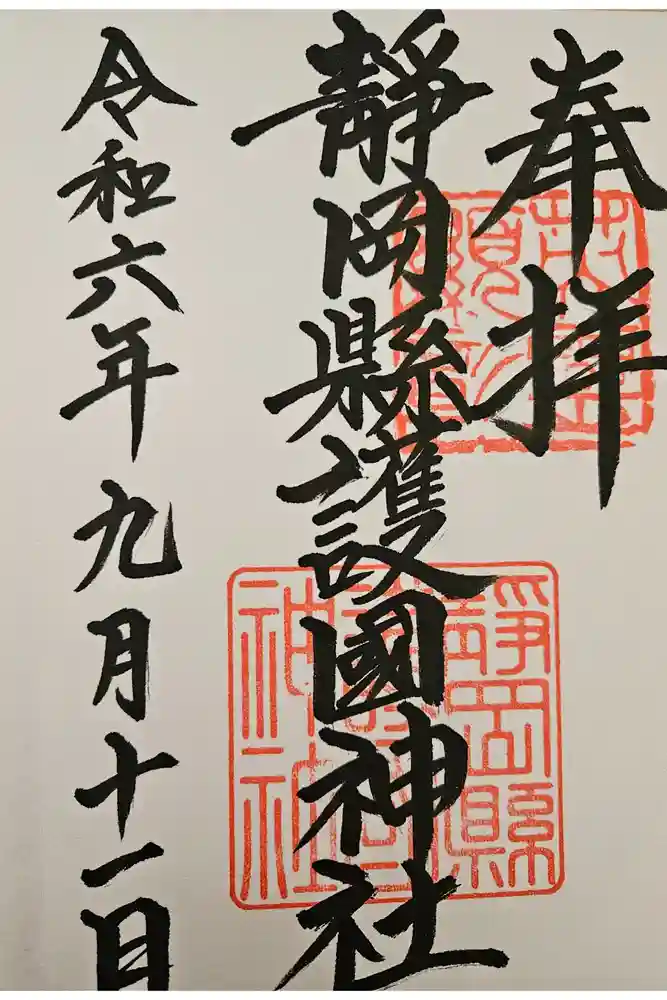 奉拝
靜岡縣護國神社
令和六年九月十一日
靜岡縣
護國
神社